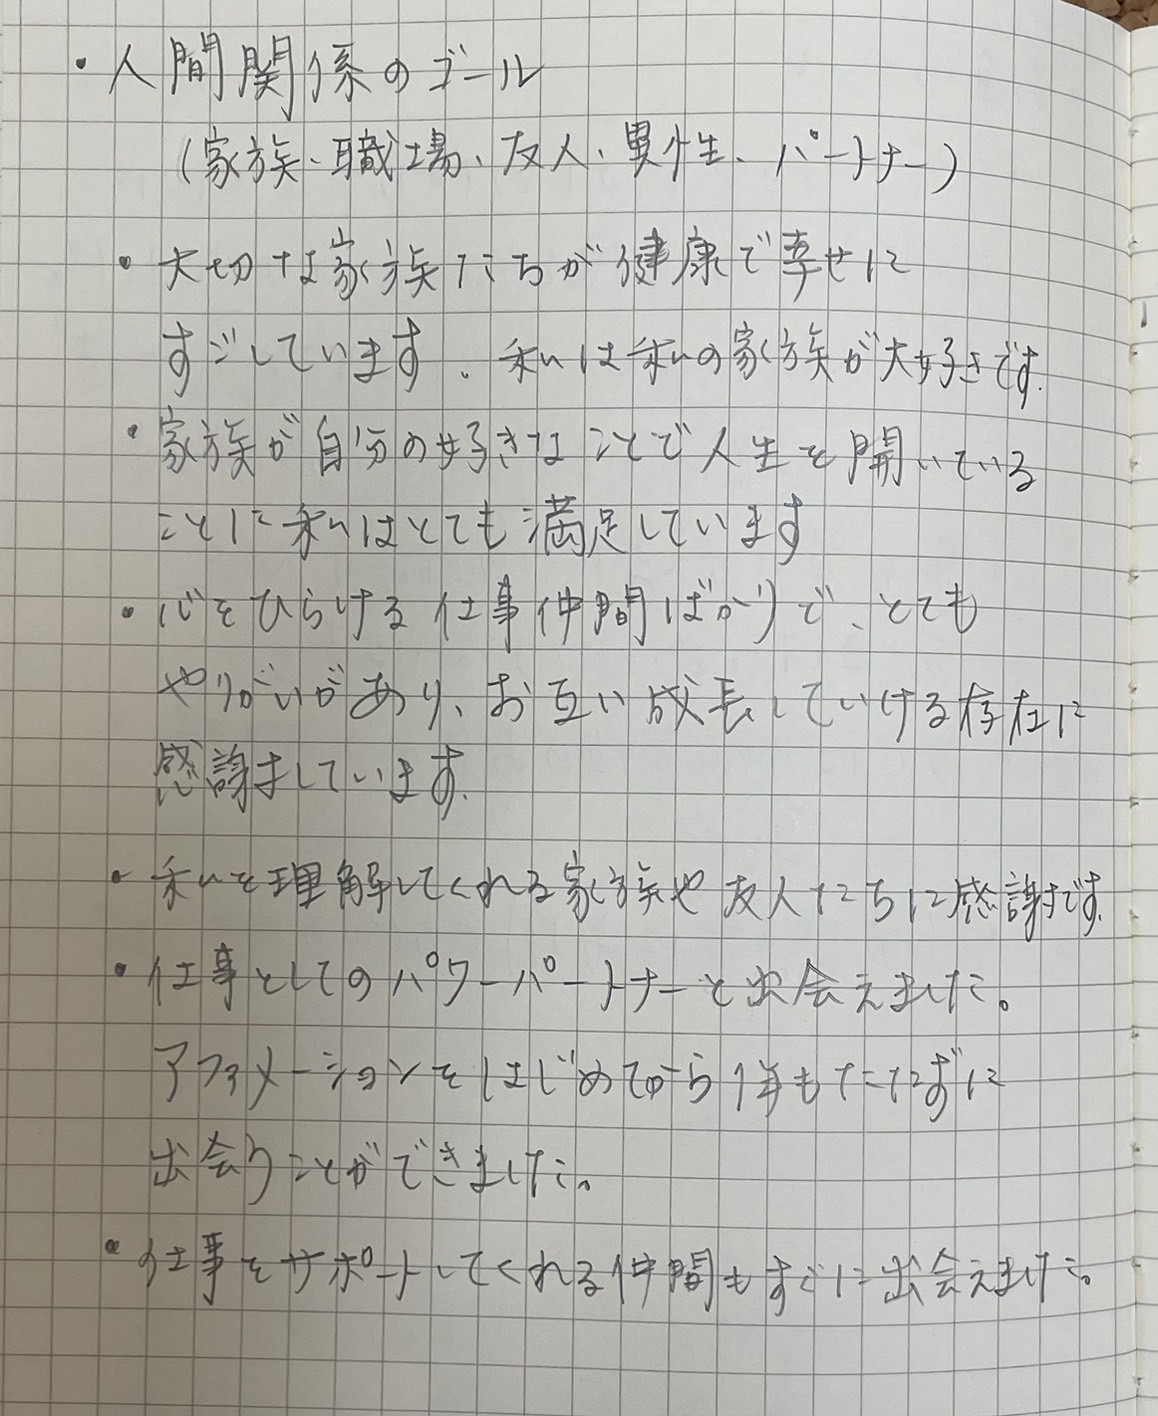 ・人間関係のゴール
（家族、職場、友人、異性、パートナー）
・大切な家族たちが健康で幸せに
すごしています。私は私の家族が大好きです。
・家族が自分の好きなことで人生を開いている
ことに私はとても満足しています
・心をひらける仕事仲間ばかりで、とても
やりがいがあり、お互い成長していける存在に
感謝をしています。
・私を理解してくれる家族や友人たちに感謝です。
・仕事としてのパワーパートナーと出会えました。
アファメーションをはじめてから1年もたたずに
出会うことができました。
・仕事をサポートしてくれる仲間もすぐに出会えました。